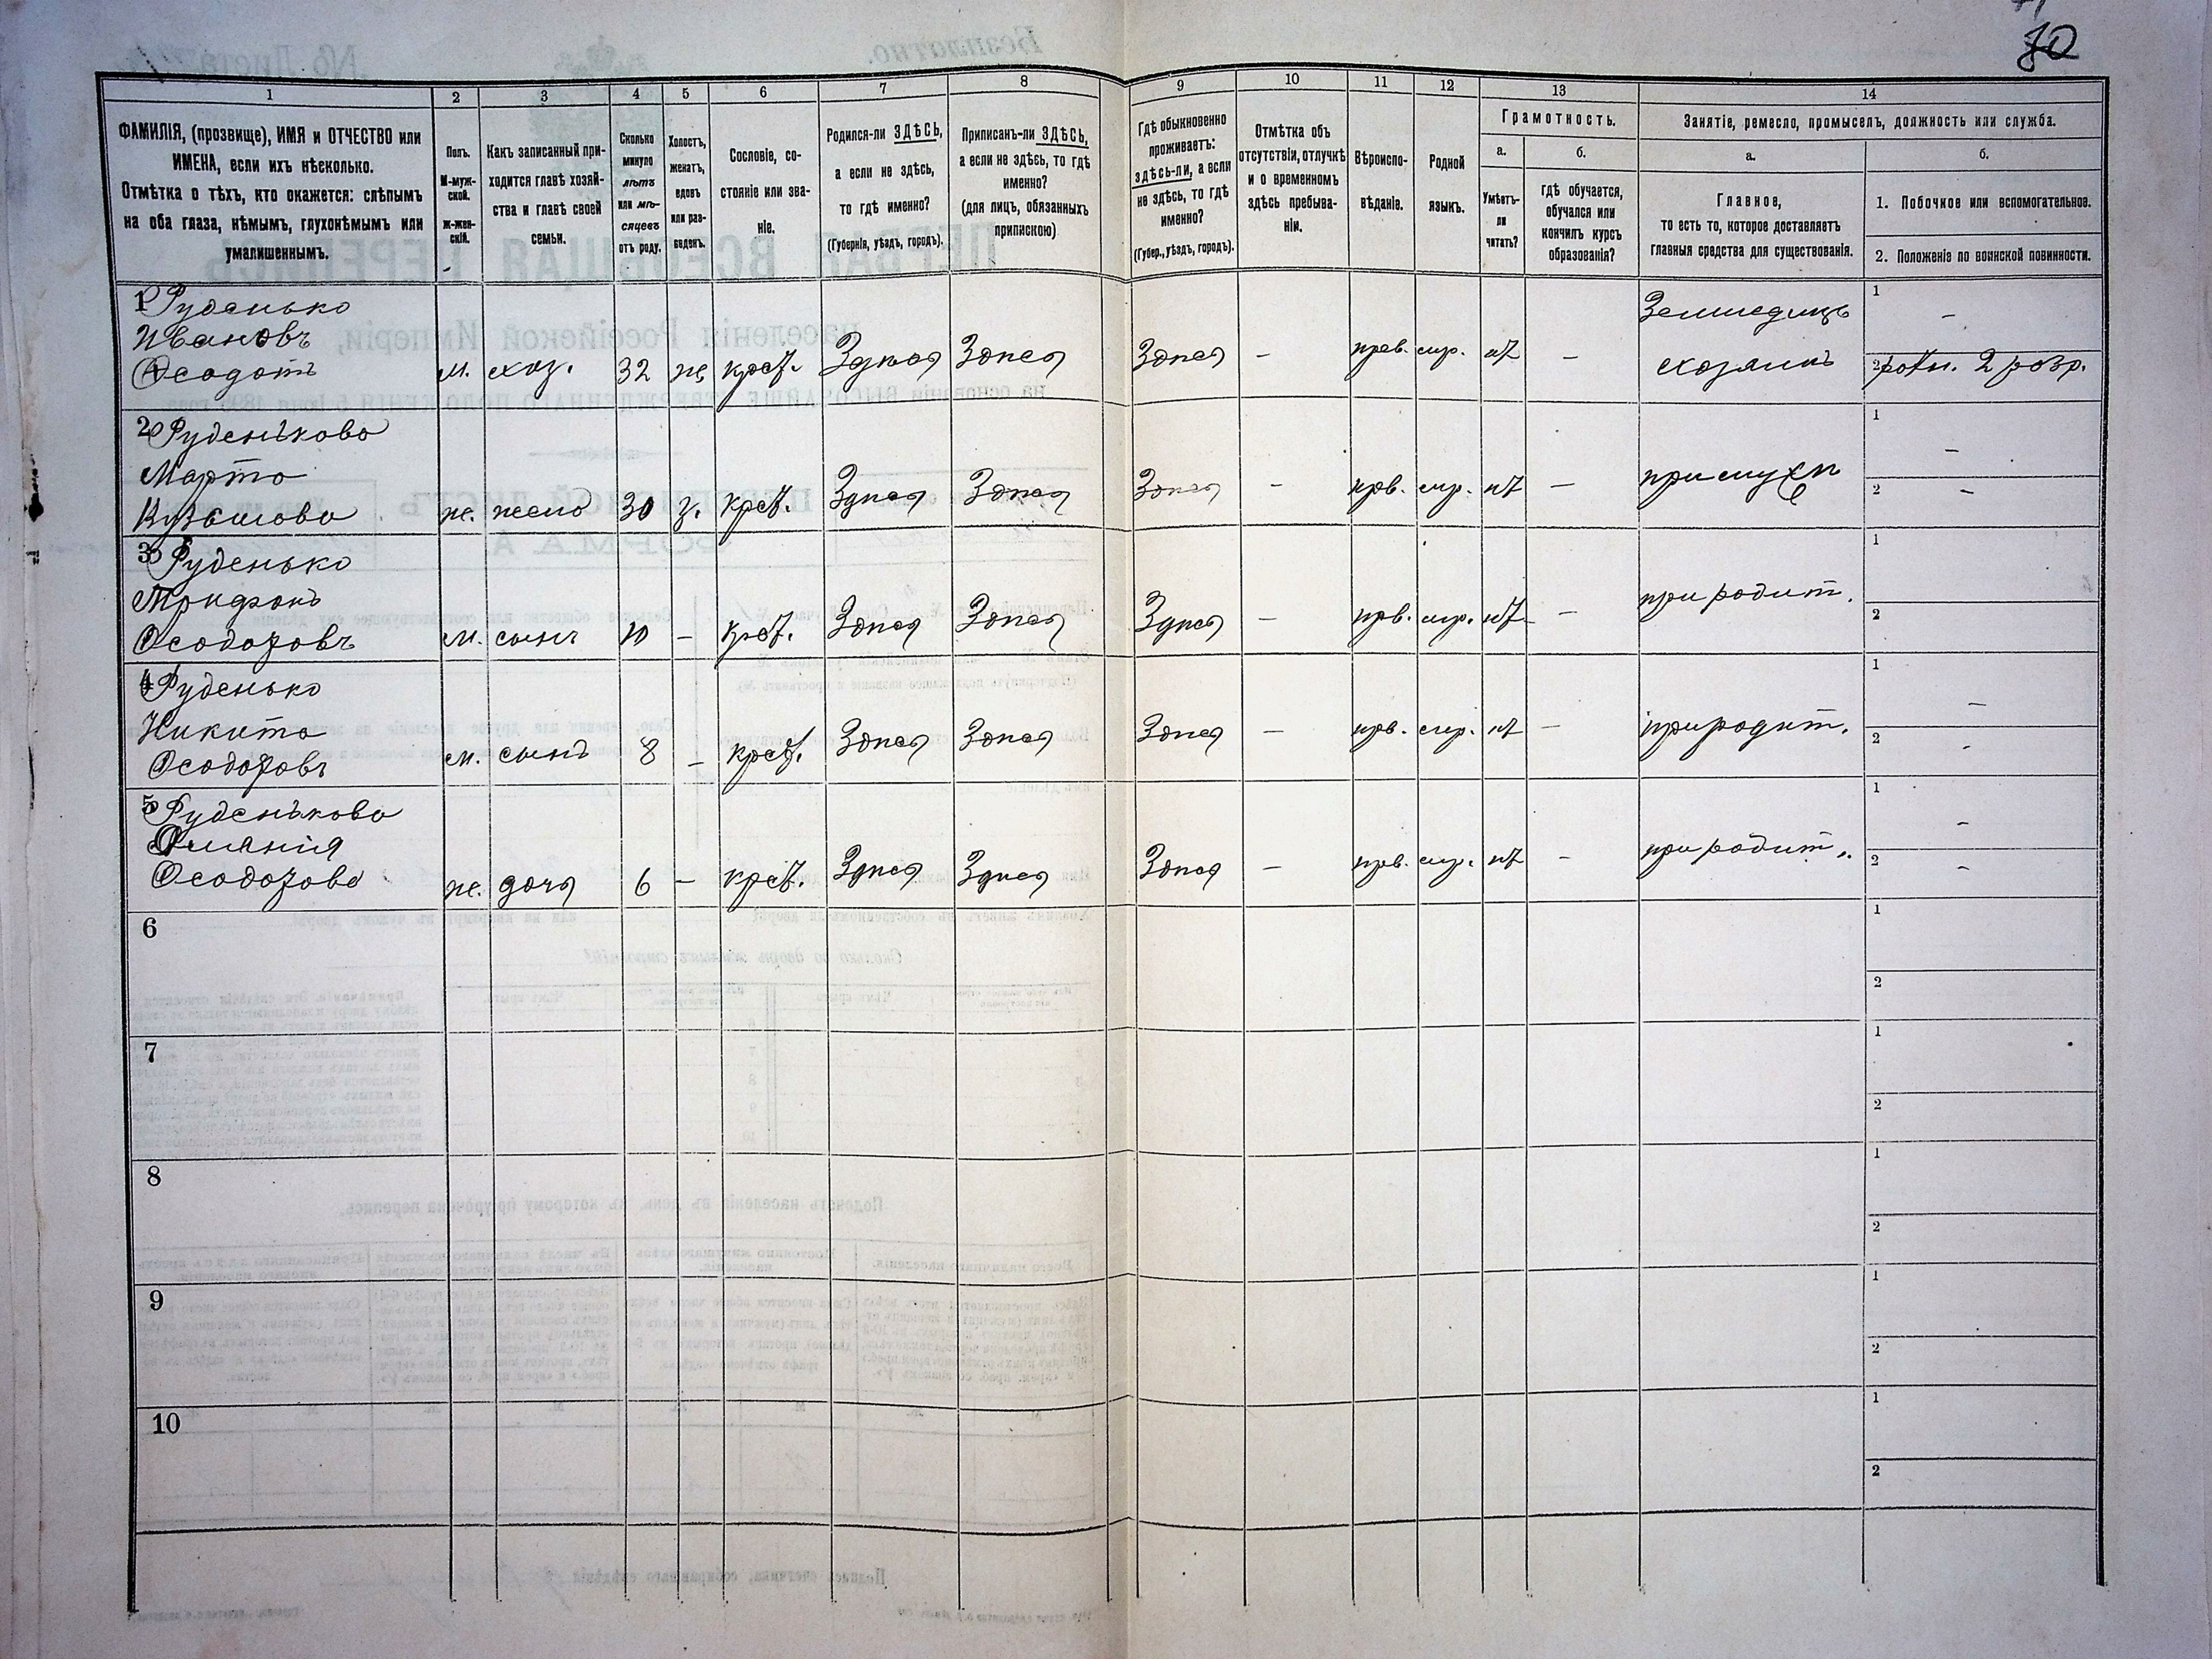 80
1 2 3 4 5 6 7 8 9 10 11 12 13 14
ФАМИЛІЯ, (прозвище), ИМЯ и ОТЧЕСТВО или
ИМЕНА, если ихъ нѣсколько.
Отмѣтка о тѣхъ, кто окажется: слѣпымъ
на оба глаза, нѣмымъ, глухонѣмымъ или
умалишеннымъ.
Полъ.
М-муж-
ской.
Ж-жен-
скій.
Какъ записанный при-
ходится главѣ хозяй-
ства и главѣ своей
семьи.
Сколько
минуло
лѣтъ
или мѣ-
сяцевъ
отъ роду.
Холостъ,
женатъ,
вдовъ
или раз-
веденъ.
Сословіе, со-
стояніе или зва-
ніе.
Родился-ли ЗДѢСЬ,
а если не здѣсь,
то гдѣ именно?
(Губернія, уѣздъ, городъ).
Приписанъ-ли ЗДѢСЬ,
а если не здѣсь, то гдѣ
именно?
(для лицъ, обязанныхъ
припискою)
Гдѣ обыкновенно
проживаетъ:
здѣсь-ли, а если
не здѣсь, то гдѣ
именно?
(Губер., уѣздъ, городъ).
Отмѣтка объ
отсутствіи, отлучкѣ
и о временномъ
здѣсь пребыва-
ніи.
Вѣроиспо-
вѣданіе.
Родной
языкъ.
Грамотность.
а.
Умѣетъ-
ли
читать?
б.
гдѣ обучается,
обучался или
кончилъ курсъ
образованія?
Занятіе, ремесло, промыселъ, должность или служба.
а.
Главное,
то есть то, которое доставляетъ
главныя средства для существованія.
б.
1. Побочное или вспомогательное.
2. Положеніе по воинской повинности.
1 Руденько
Ивановъ
Ѳеодотъ м. хоз. 32 ж. крест. Здѣсь Здѣсь Здѣсь – прав. мр. нѣт –
Земледелецъ
хозяинъ
1 –
2 ратн. 2 разр.
2 Руденькова
Марта
Кузьмова ж. жена 30 з. крест. Здѣсь Здѣсь Здѣсь – прв. мр. нѣт – при мужѣ
1 –
2 –
3 Руденько
Трифонъ
Ѳеодоровъ м. сынъ 10 – крест. Здѣсь Здѣсь Здѣсь – прв. мр. нѣт – при родит.
1
2
4 Руденько
Никита
Ѳеодоровъ м. сынъ 8 – крест. Здѣсь Здѣсь Здѣсь – прв. мр. нѣт – при родит.
1 –
2 -
5 Руденькова
Ѳеодорова ж. дочь 6 – крест. Здѣсь Здѣсь Здѣсь – прв. мр. нѣт – при родит.
1 –
2 –
6
1
2
7
1
2
8
1
2
9
1
2
10
1
2